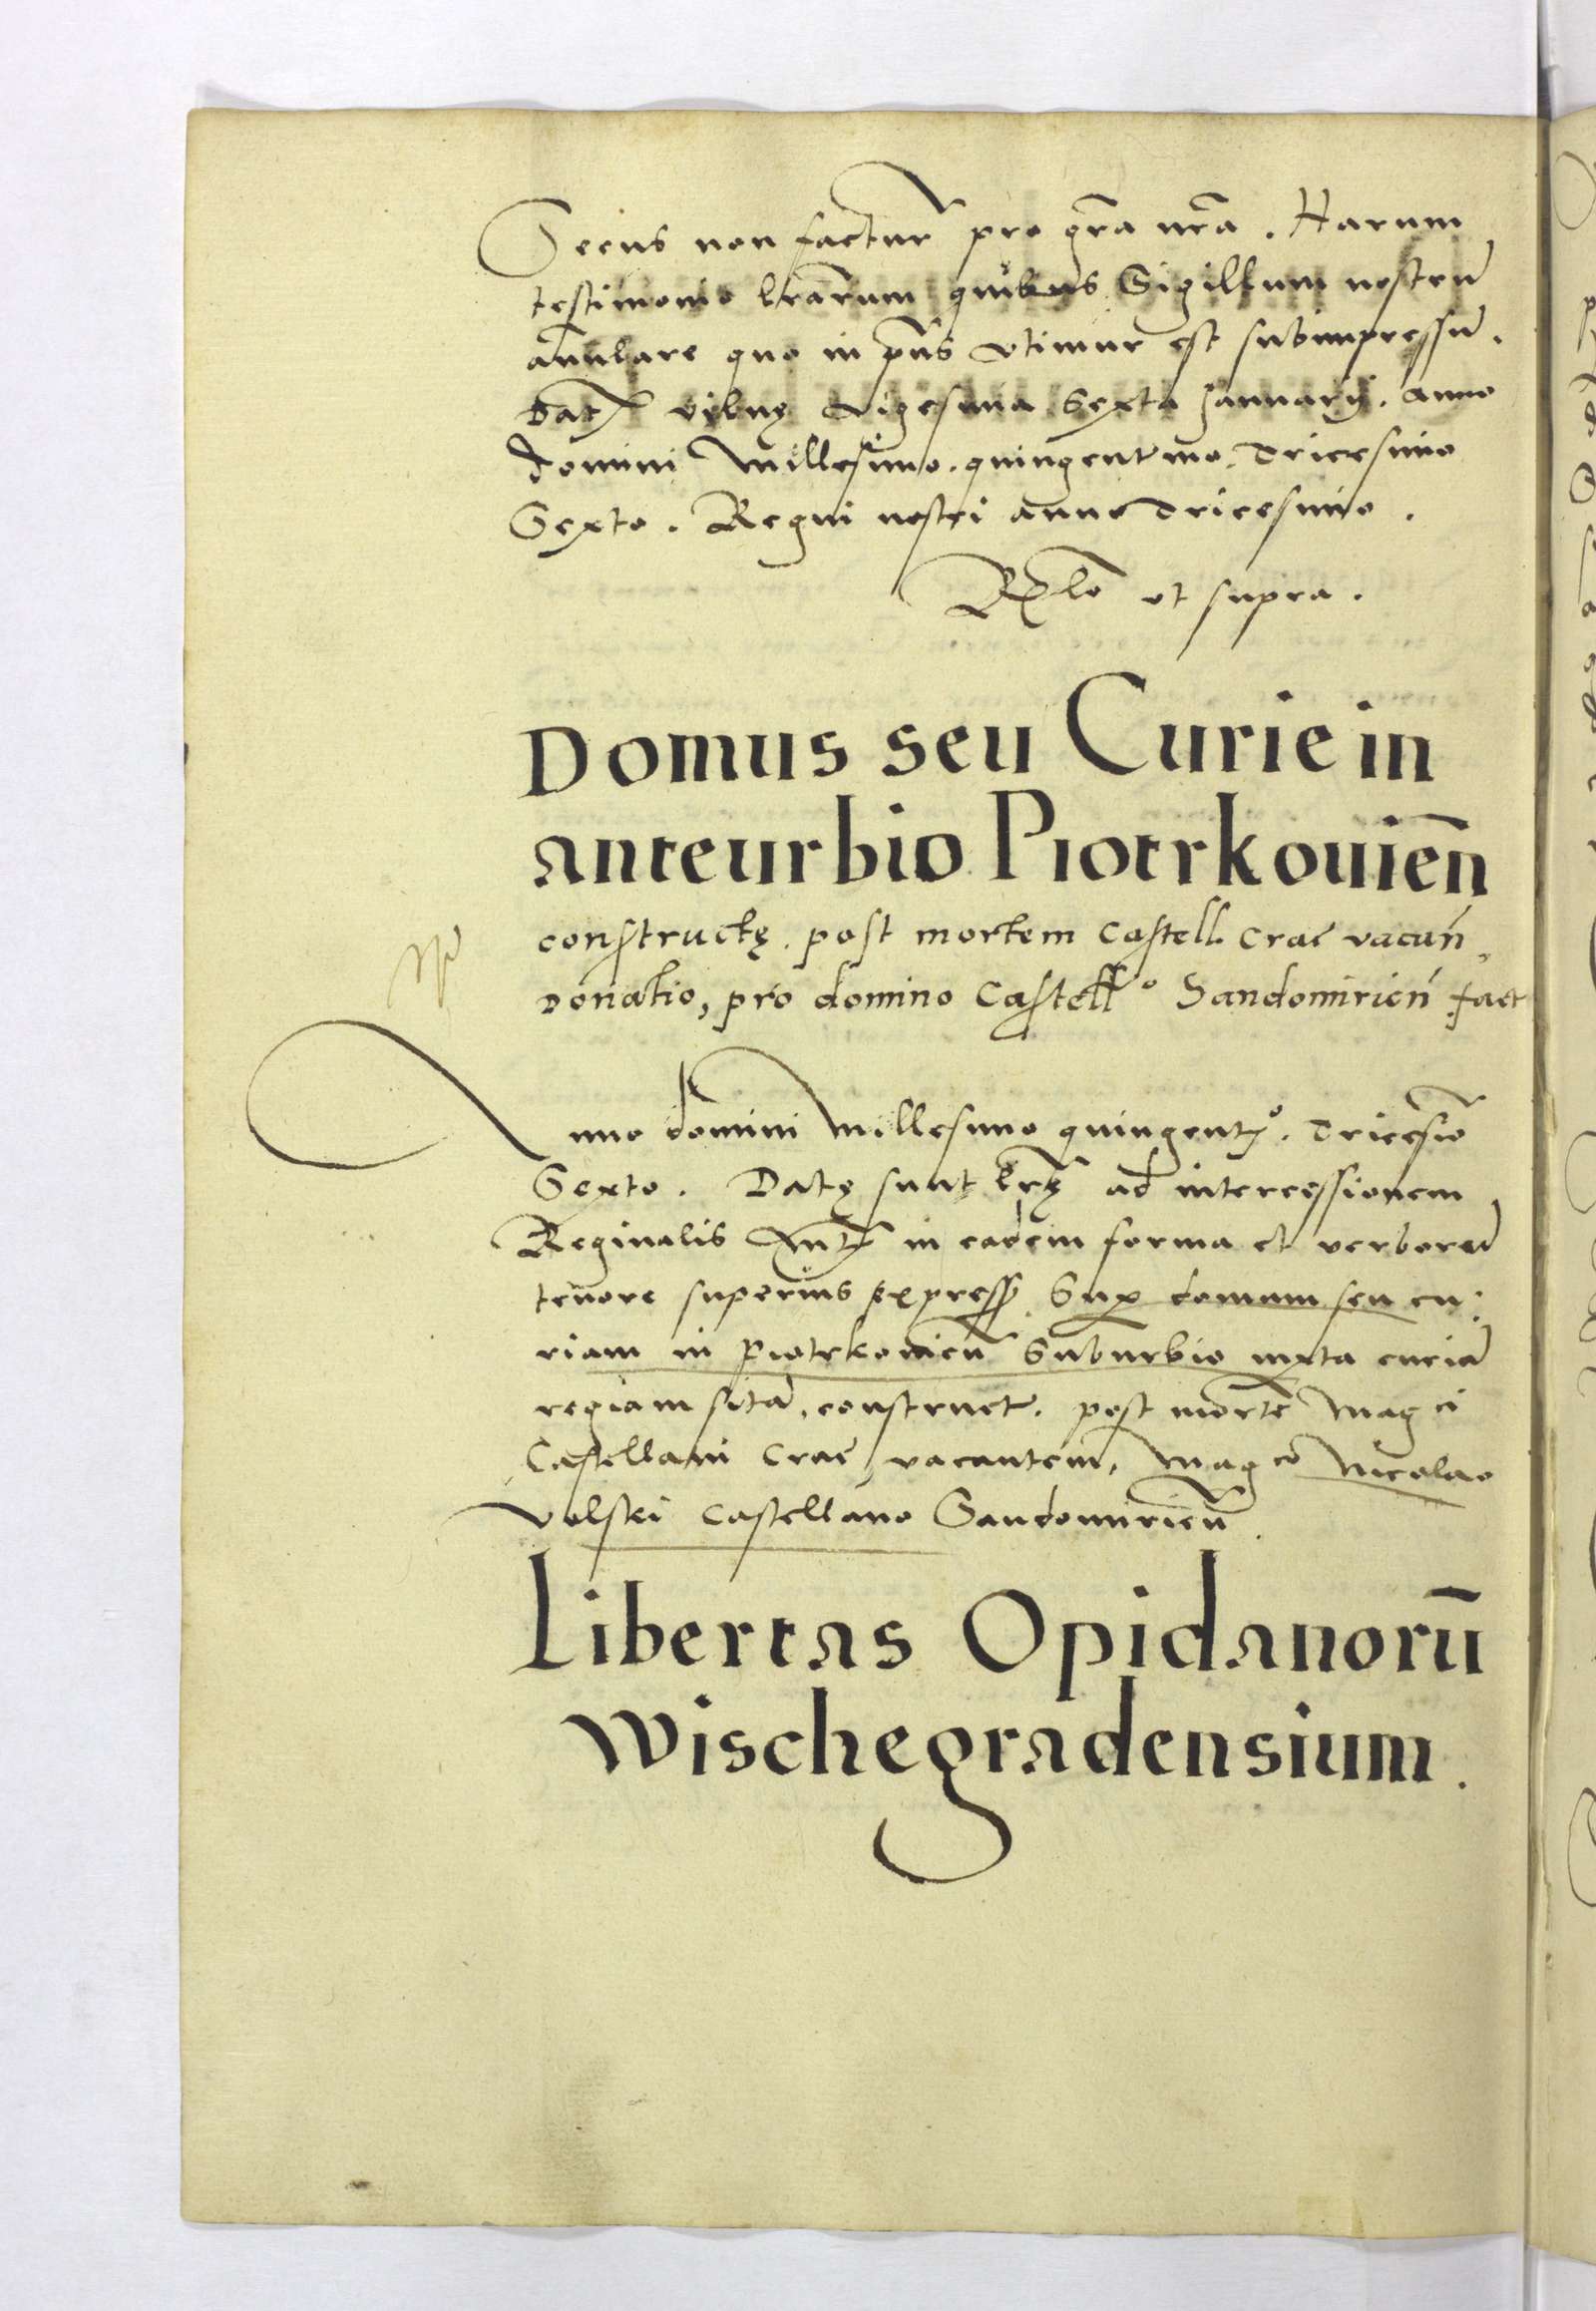 Secus non factur̃ pro gr̃a nr̃a. Harum
testimonio lr̃arum quibus Sigillum nostrũ
añulare quo in pñs vtimur est subimpressũ.
Dat̃ vilnę vigesima Sexta Januarij. anno
domini Millesimo. quingentmo. Tricesimo
Sexto. Regni nostri anno Tricesimo.
Rlo ut supra.
Domus seu Curie in
anteurbio Piotrkouieñ
constructę. post mortem Castell. Crac̃ vacañ.
Donatio, pro domino Castellº Sandomirień fact
Anno domini Millesimo quingentº. Tricesiõ
Sexto. Datę sunt lr̃ę ad intercessionem
Reginalis Mt̃ in eadem forma et verborũ
tenore superius express̃. Sup domum seu cu:
riam in piotrkouieñ Suburbio iuxta curiã
regiam sitã, construct. post mortẽ Magci
Castellani Crac̃ vacantem, Magco Nicolao
Volski Castellano Sandomirieñ.
Libertas Opidanorũ
Wischegradensium.